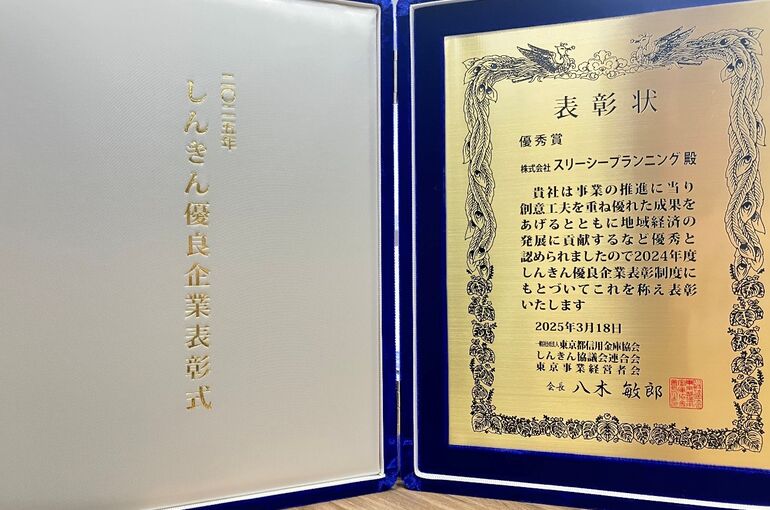 二〇二五年
しんきん優良企業表彰式
表彰状
優秀賞
株式会社 スリーシープランニング 殿
貴社は事業の推進に当り
創意工夫を重ね優れた成果を
あげるとともに地域経済の
発展に貢献するなど優秀と
認められましたので2024年度
しんきん優良企業表彰制度に
もとづいてこれを称え表彰
いたします
2025年3月18日
一般社団法人東京都信用金庫協会
しんきん協議会連合会
東京事業経営者会
会長 八木 敏郎